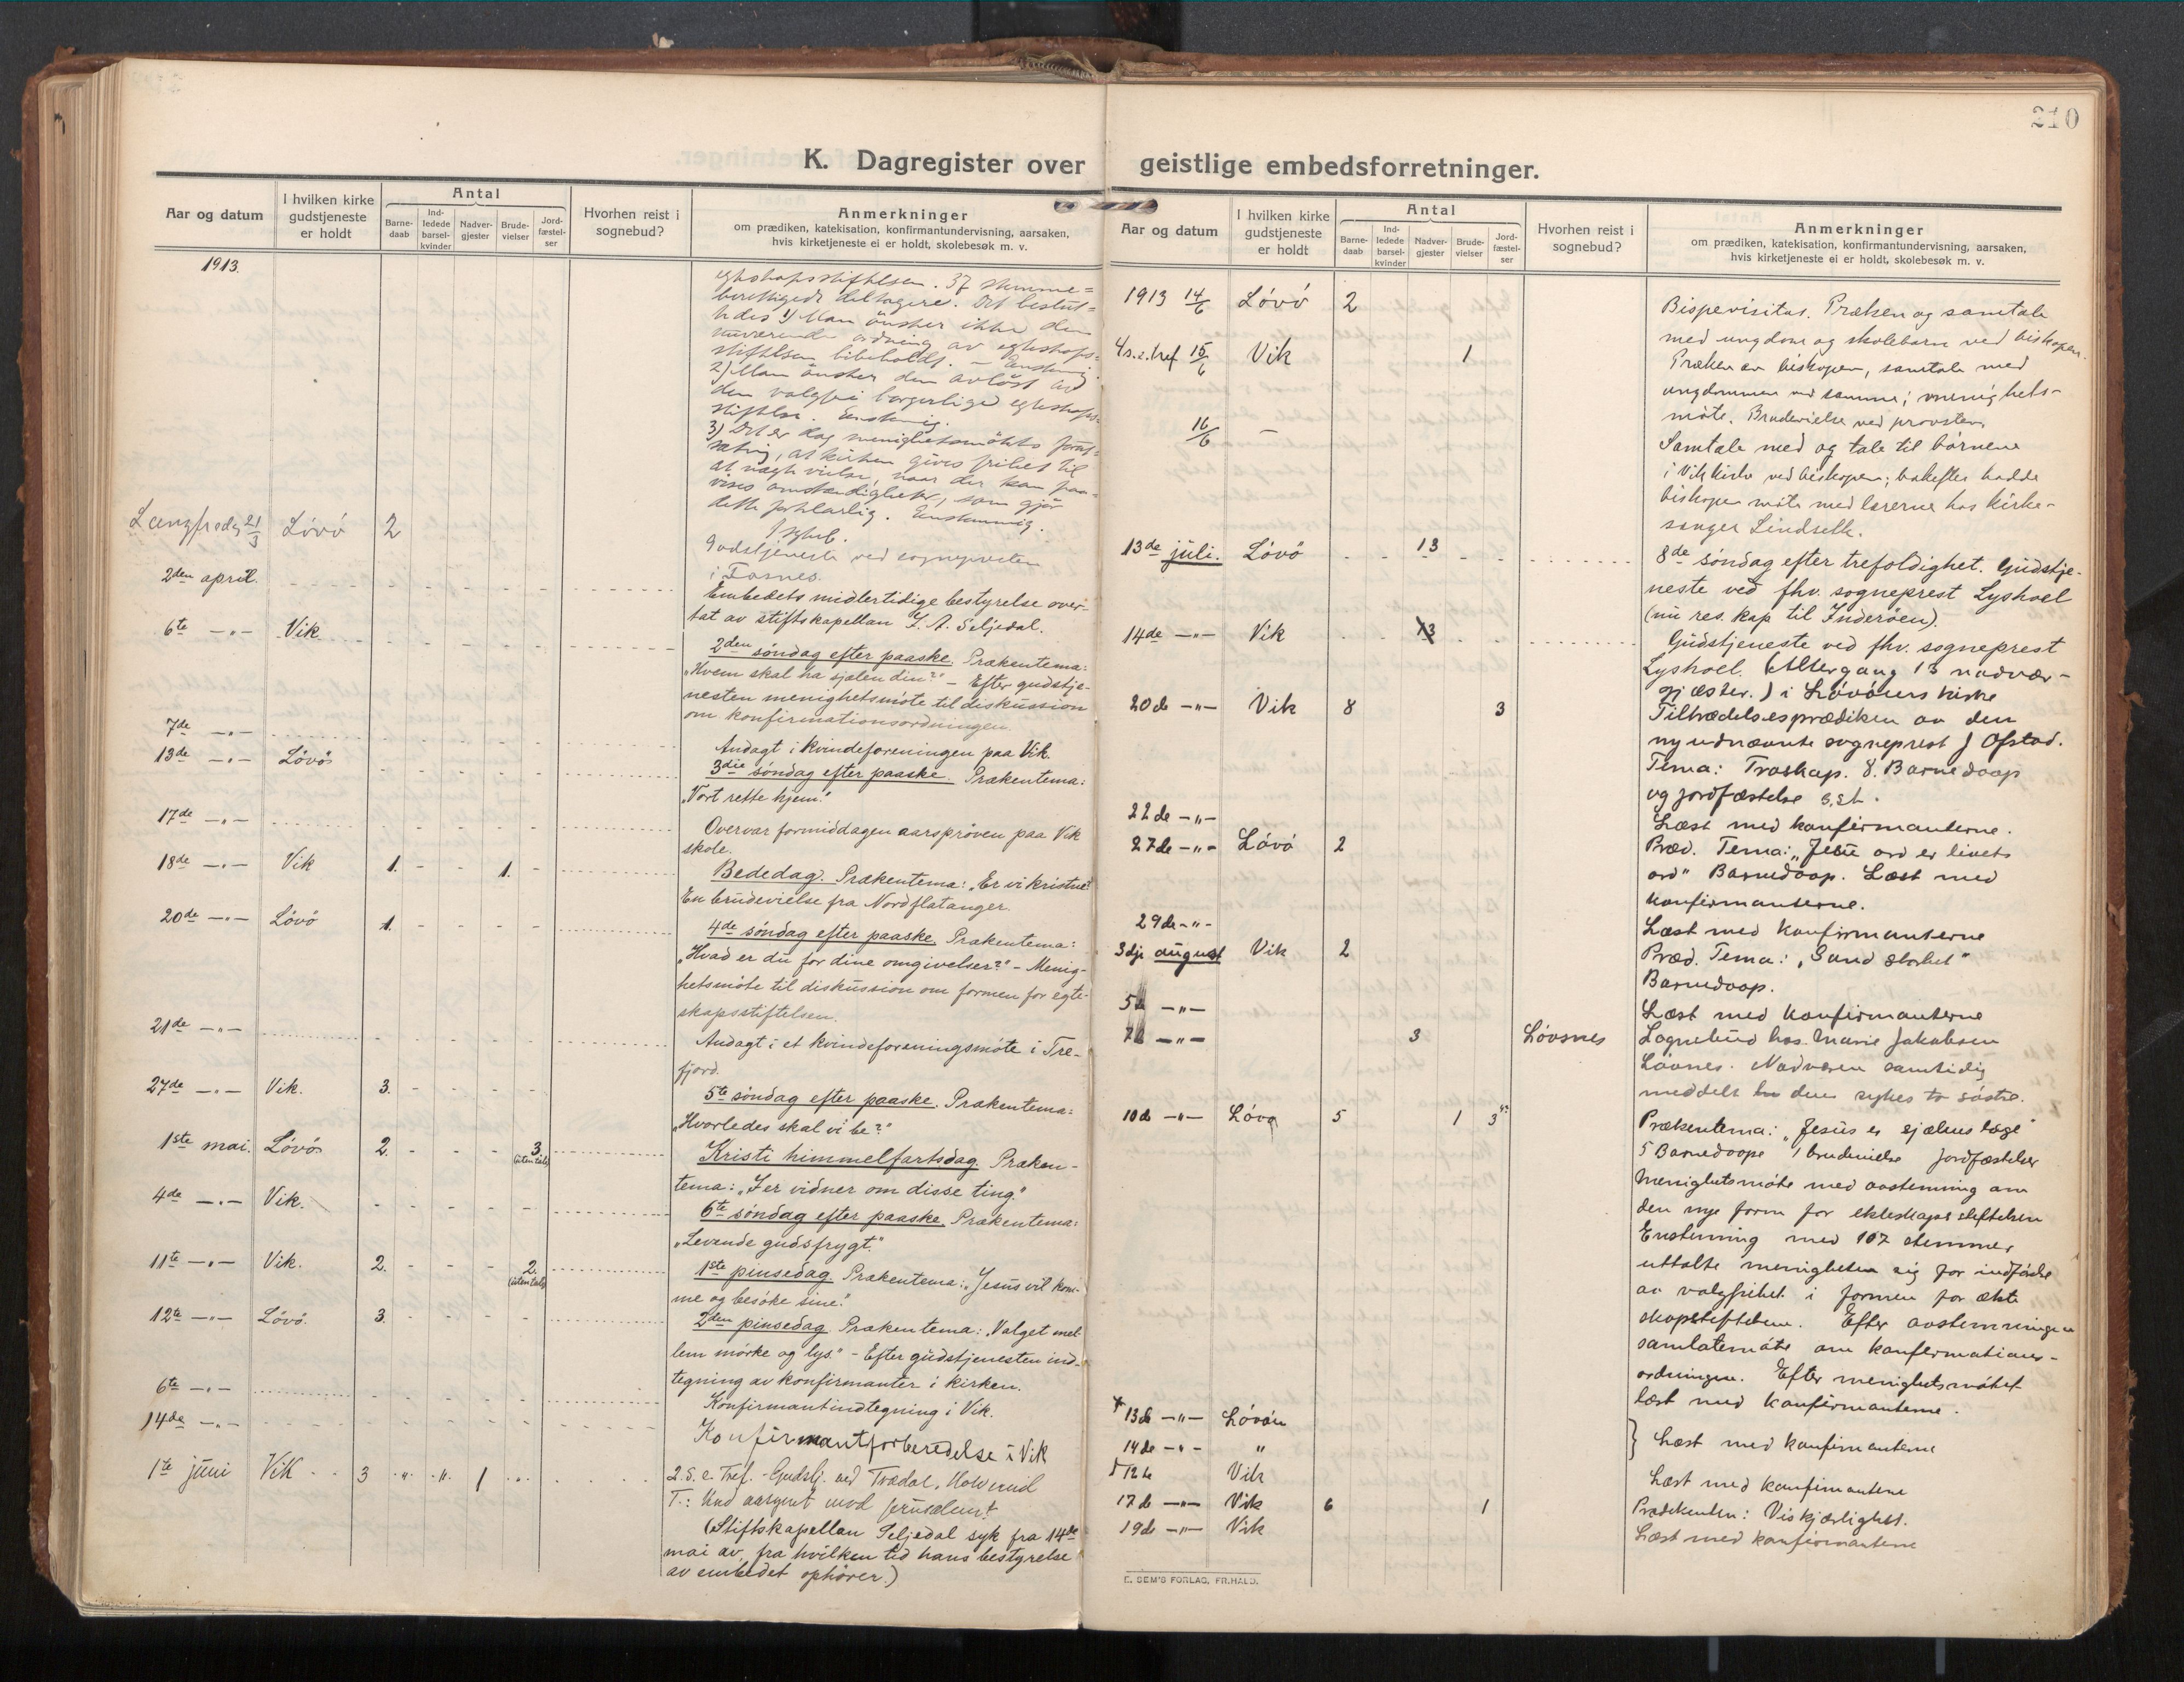 210
K. Dagregister over geistlige embedsforretninger.
Aar og datum
I hvilken kirke gudstjeneste er holdt
Antal
Barne-daab
Ind-ledede barsel-kvinder
Nadver-gjester
Brude-vielser
Jord-fæstel-ser
Hvorhen reist i sognebud?
Anmerkninger
om prædiken, katekisation, konfirmantundervisning, aarsaken,
hvis kirketjeneste ei er holdt, skolebesøk m. v.
1913.
egteskapsstiftelsen. 37 stemme=
berettigede deltagere. Det beslut=
tedes 1) Man ønsker ikke den
nuværende ordning av egteskaps=
stiftelsen bibeholdt. – Enstemmig.
2) Man ønsker den avløst av
den valgfri borgerlige egteskaps=
stiftelse. Enstemmig.
3) Det er dog menighetsmøtets forut=
sætning, at kirken gives frihet til
at nægte vielse, naar der kan paa=
vises omstændigheter, som gjør
dette forklarlig. Enstemmig.
Langfredag 21/3 Løvø 2
Gudstjeneste ved sognepresten
i Fosnes.
2den april.
Embedets midlertidige bestyrelse over-
tat av stiftskapellan I. A. Seljedal.
6te –"– Vik
2den søndag efter paaske. Prækentema:
"Hvem skal ha sjælen din?" – Efter gudstje-
nesten menighetsmøte til diskussion
om konfirmationsordningen.
7de –"–
Andagt i kvindeforeningen paa Vik.
13de –"– Løvø
3die søndag efter paaske. Prækentema:
"Vort rette hjem."
17de –"–
Overvar formiddagen aarsprøven paa Vik
skole.
18de –"– Vik 1. 1.
Bededag. Prækentema: "Er vi kristne?"
En brudevielse fra Nordflatanger.
20de –"– Løvø 1.
4de søndag efter paaske. Prækentema:
"Hvad er du for dine omgivelser?" – Menig-
hetsmøte til diskussion om formen for egte-
skapsstiftelsen.
21de –"–
Andagt i et kvindeforeningsmøte i Tre-
fjord.
27de –"– Vik. 3.
5te søndag efter paaske. Prækentema:
"Hvorledes skal vi be?"
1ste mai. Løvø 2. 3. (uten tale)
Kristi himmelfartsdag. Præken-
tema: "I er vidner om disse ting."
4de –"– Vik.
6te søndag efter paaske. Prækentema:
"Levende gudsfrygt."
11te –"– Vik. 2. 2. (uten tale)
1ste pinsedag. Prækentema: "Jesus vil kom-
me og besøke sine."
12te –"– Løvø. 3.
2den pinsedag. Prækentema: "Valget mel-
lem mørke og lys." – Efter gudstjenesten ind-
tegning av konfirmanter i kirken.
6te –"–
Konfirmantindtegning i Vik.
14de –"–
Konfirmantforberedelse i Vik
1te juni Vik 3 " " 1
2. S. e. Tref. – Gudstj. ved Trædal,
T.: Und aasynet mod Jerusalem!
(Stiftskapellan Seljedal syk fra 14de
mai av, fra hvilken tid hans bestyrelse
av embedet ophører.)
Aar og datum
I hvilken kirke gudstjeneste er holdt
Antal
Barne-daab
Ind-ledede barsel-kvinder
Nadver-gjester
Brude-vielser
Jord-fæstel-ser
Hvorhen reist i sognebud?
Anmerkninger
om prædiken, katekisation, konfirmantundervisning, aarsaken,
hvis kirketjeneste ei er holdt, skolebesøk m. v.
1913 14/6 Løvø 2
Bispevisitas. Præken og samtale
med ungdom og skolebarn ved biskopen.
4 s. e. tref 15/6 Vik 1
Præken av biskopen, samtale med
ungdommen ved samme; menighets-
møte. Brudevielse ved provsten
16/6 –
Samtale med og tale til børnene
i Vik kirke ved biskopen; bakefter hadde
biskopen møte med lærerne hos kirke-
sanger Lindseth.
13de juli. Løvø 13
8de søndag efter trefoldighet. Gudstje-
neste ved fhv. sogneprest Lyshoel
(nu res. kap til Inderøen).
14de –"– Vik 13
Gudstjeneste ved fhv. sogneprest
Lyshoel. (Altergang 13 nadvær-
gjæster.) i Løvøens kirke
20de –"– Vik 8 3
Tiltrædelsesprædiken av den
nyudnævnte sogneprest J Ofstad.
Tema: Troskap. 8. Barnedaap
og jordfæstelse 3. st.
22de –"–
Læst med konfirmanterne.
27de –"– Løvø 2
Præd. Tema: "Jesu ord er livets
ord" Barnedaap. Læst med
konfirmanterne.
29de –"–
Læst med konfirmanterne
3dje august Vik 2
Præd. Tema: "Sand storhet"
Barnedaap.
5te –"–
Læst med konfirmanterne
7de –"– 3 Løvsnes
Sognebud hos Marie Jakobsen
Løvsnes. Nadveren samtidig
meddelt to den sykes to søstre.
10de –"– Løvø 5 1 3
Prækentema: "Jesus er sjælens læge"
5 Barnedaape 1 brudevielse jordfæstelser
Menighetsmøte med avstemning om
den nye form for ekteskapsstiftelsen
Enstemmig med 107 stemmer
uttalte menigheten sig for indførelse
av valgfrihet i formen for ækte
skapsstiftelsen. Efter avstemningen
samtalemøte om konfirmations-
ordningen. Efter menighetsmøtet
læst med konfirmanterne.
13de –"– Løvøen
14de –"– "
} Læst med konfirmanterne
12te Vik
Læst med konfirmantene
17de –"– Vik 6 1
Prædikentem: Vis kjærlighet.
19de –"– Vik
Læst med konfirmantene
E. SEM'S FORLAG, FR.HALD.